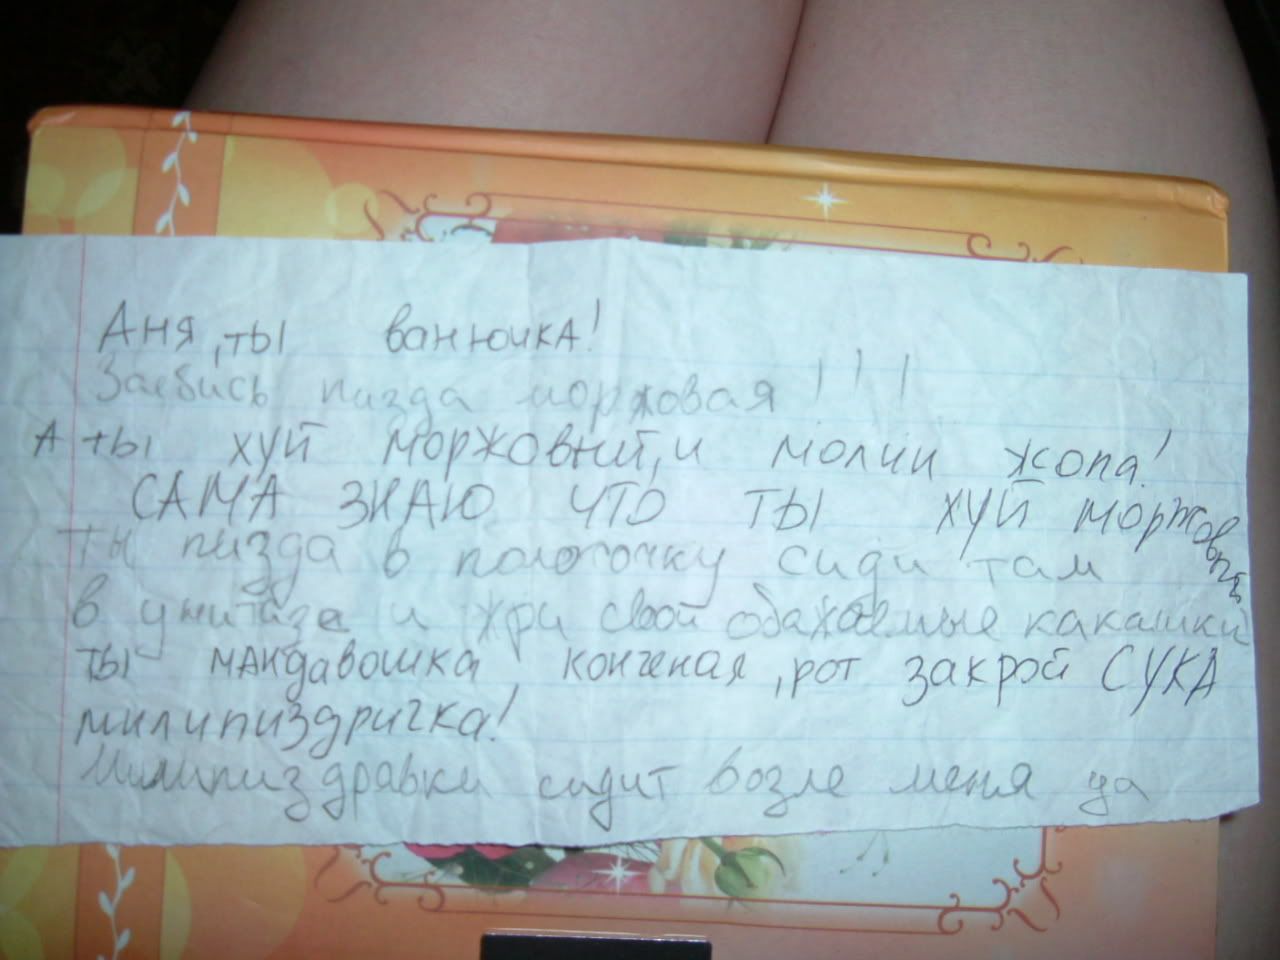 Аня, ты ванючка!
Заебись пизда моржовая !!!
А ты хуй моржовый, и молчи жопа!
САМА ЗНАЮ ЧТО ТЫ ХУЙ МОРЖОВЫЙ
Ты пизда в полоточку сиди там
в унитазе и жри свой обажаемые какашки
ты мандавошка конченая, рот закрой СУКА
милипиздричка!
сидит возле меня да